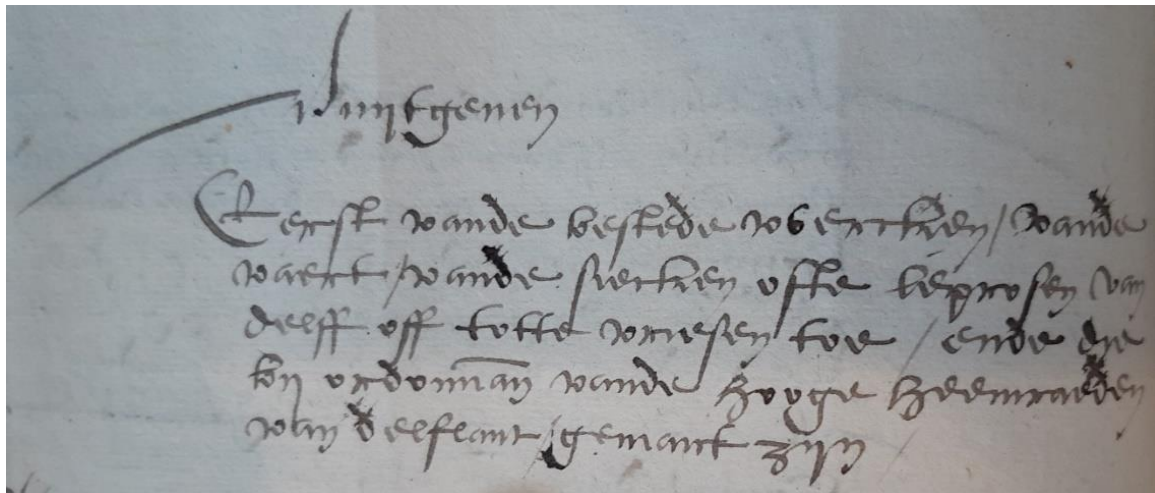 Uuijtgeven
Eerst vande bestede wercken / vande
vaert / vande siecken ofte leprosen van
delff off totte vriesen toe / ende die
bij ordonnan vande hooge heemraeden
van delflant / gemaict zijn